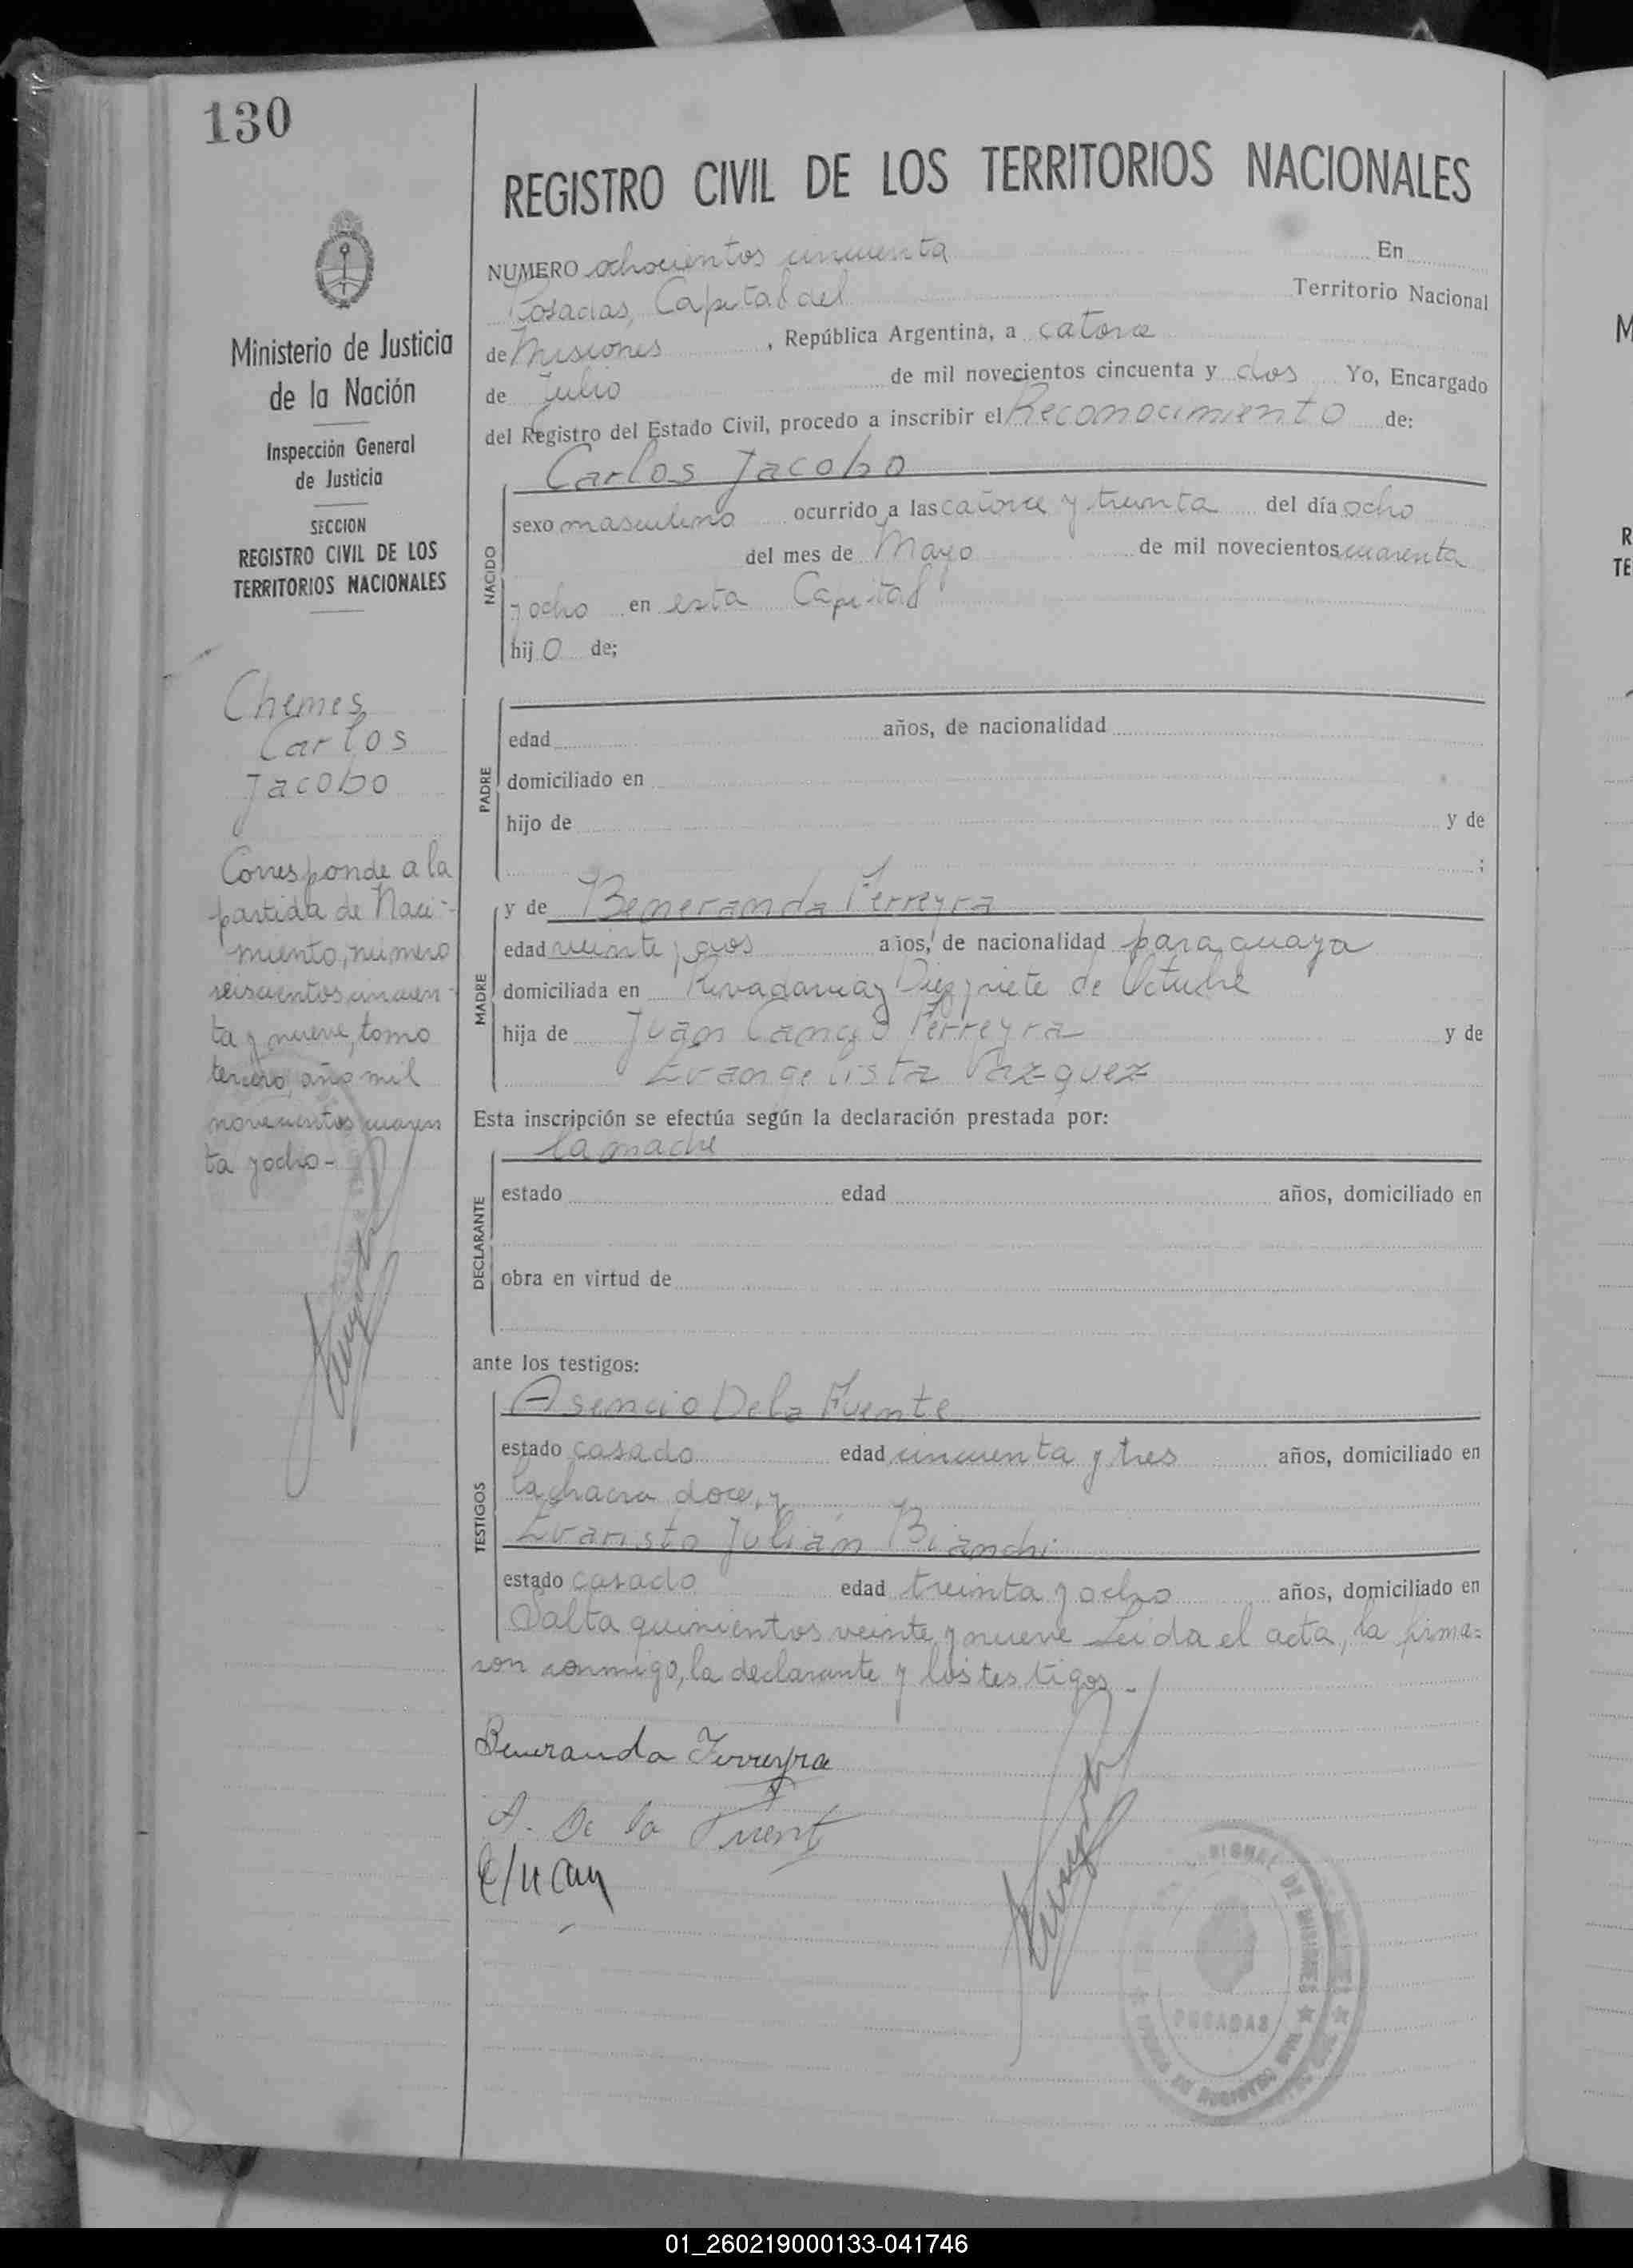 130
REGISTRO CIVIL DE LOS TERRITORIOS NACIONALES
Ministerio de Justicia
de la Nación
Inspección General
de Justicia
SECCION
REGISTRO CIVIL DE LOS
TERRITORIOS NACIONALES
Chemes
Carlos
Jacobo
Corresponde a la
partida de Naci-
miento, número
seiscientos cincuen-
ta y nueve, tomo
tercero, año mil
novecientos cuaren
ta y ocho-
NUMERO ochocientos cincuenta En
Posadas, Capital del Territorio Nacional
de Misiones, República Argentina, a catorce
de Julio de mil novecientos cincuenta y dos Yo, Encargado
del Registro del Estado Civil, procedo a inscribir el Reconocimiento de:
Carlos Jacobo
NACIDO
sexo masculino ocurrido a las catorce y treinta del día ocho
del mes de Mayo de mil novecientos cuarenta
y ocho en esta Capital
hijo de;
PADRE
edad años, de nacionalidad
domiciliado en
hijo de y de
;
MADRE
y de Beneranda Ferreyra
edad veinte y dos años, de nacionalidad paraguaya
domiciliada en Rivadavia y Diez y siete de Octubre
hija de Juan Ferreyra y de
Evangelista Vazquez
Esta inscripción se efectúa según la declaración prestada por:
la madre
DECLARANTE
estado edad años, domiciliado en
obra en virtud de
ante los testigos:
TESTIGOS
Asencio De la Fuente
estado casado edad cincuenta y tres años, domiciliado en
la chacra doce, y
Evaristo Julián Bianchi
estado casado edad treinta y ocho años, domiciliado en
Salta quinientos veinte y nueve Leída el acta, la firma=
ron conmigo, la declarante y los testigos.-
Beneranda Ferreyra
A. De la Fuent
POSADAS
01_260219000133-041746